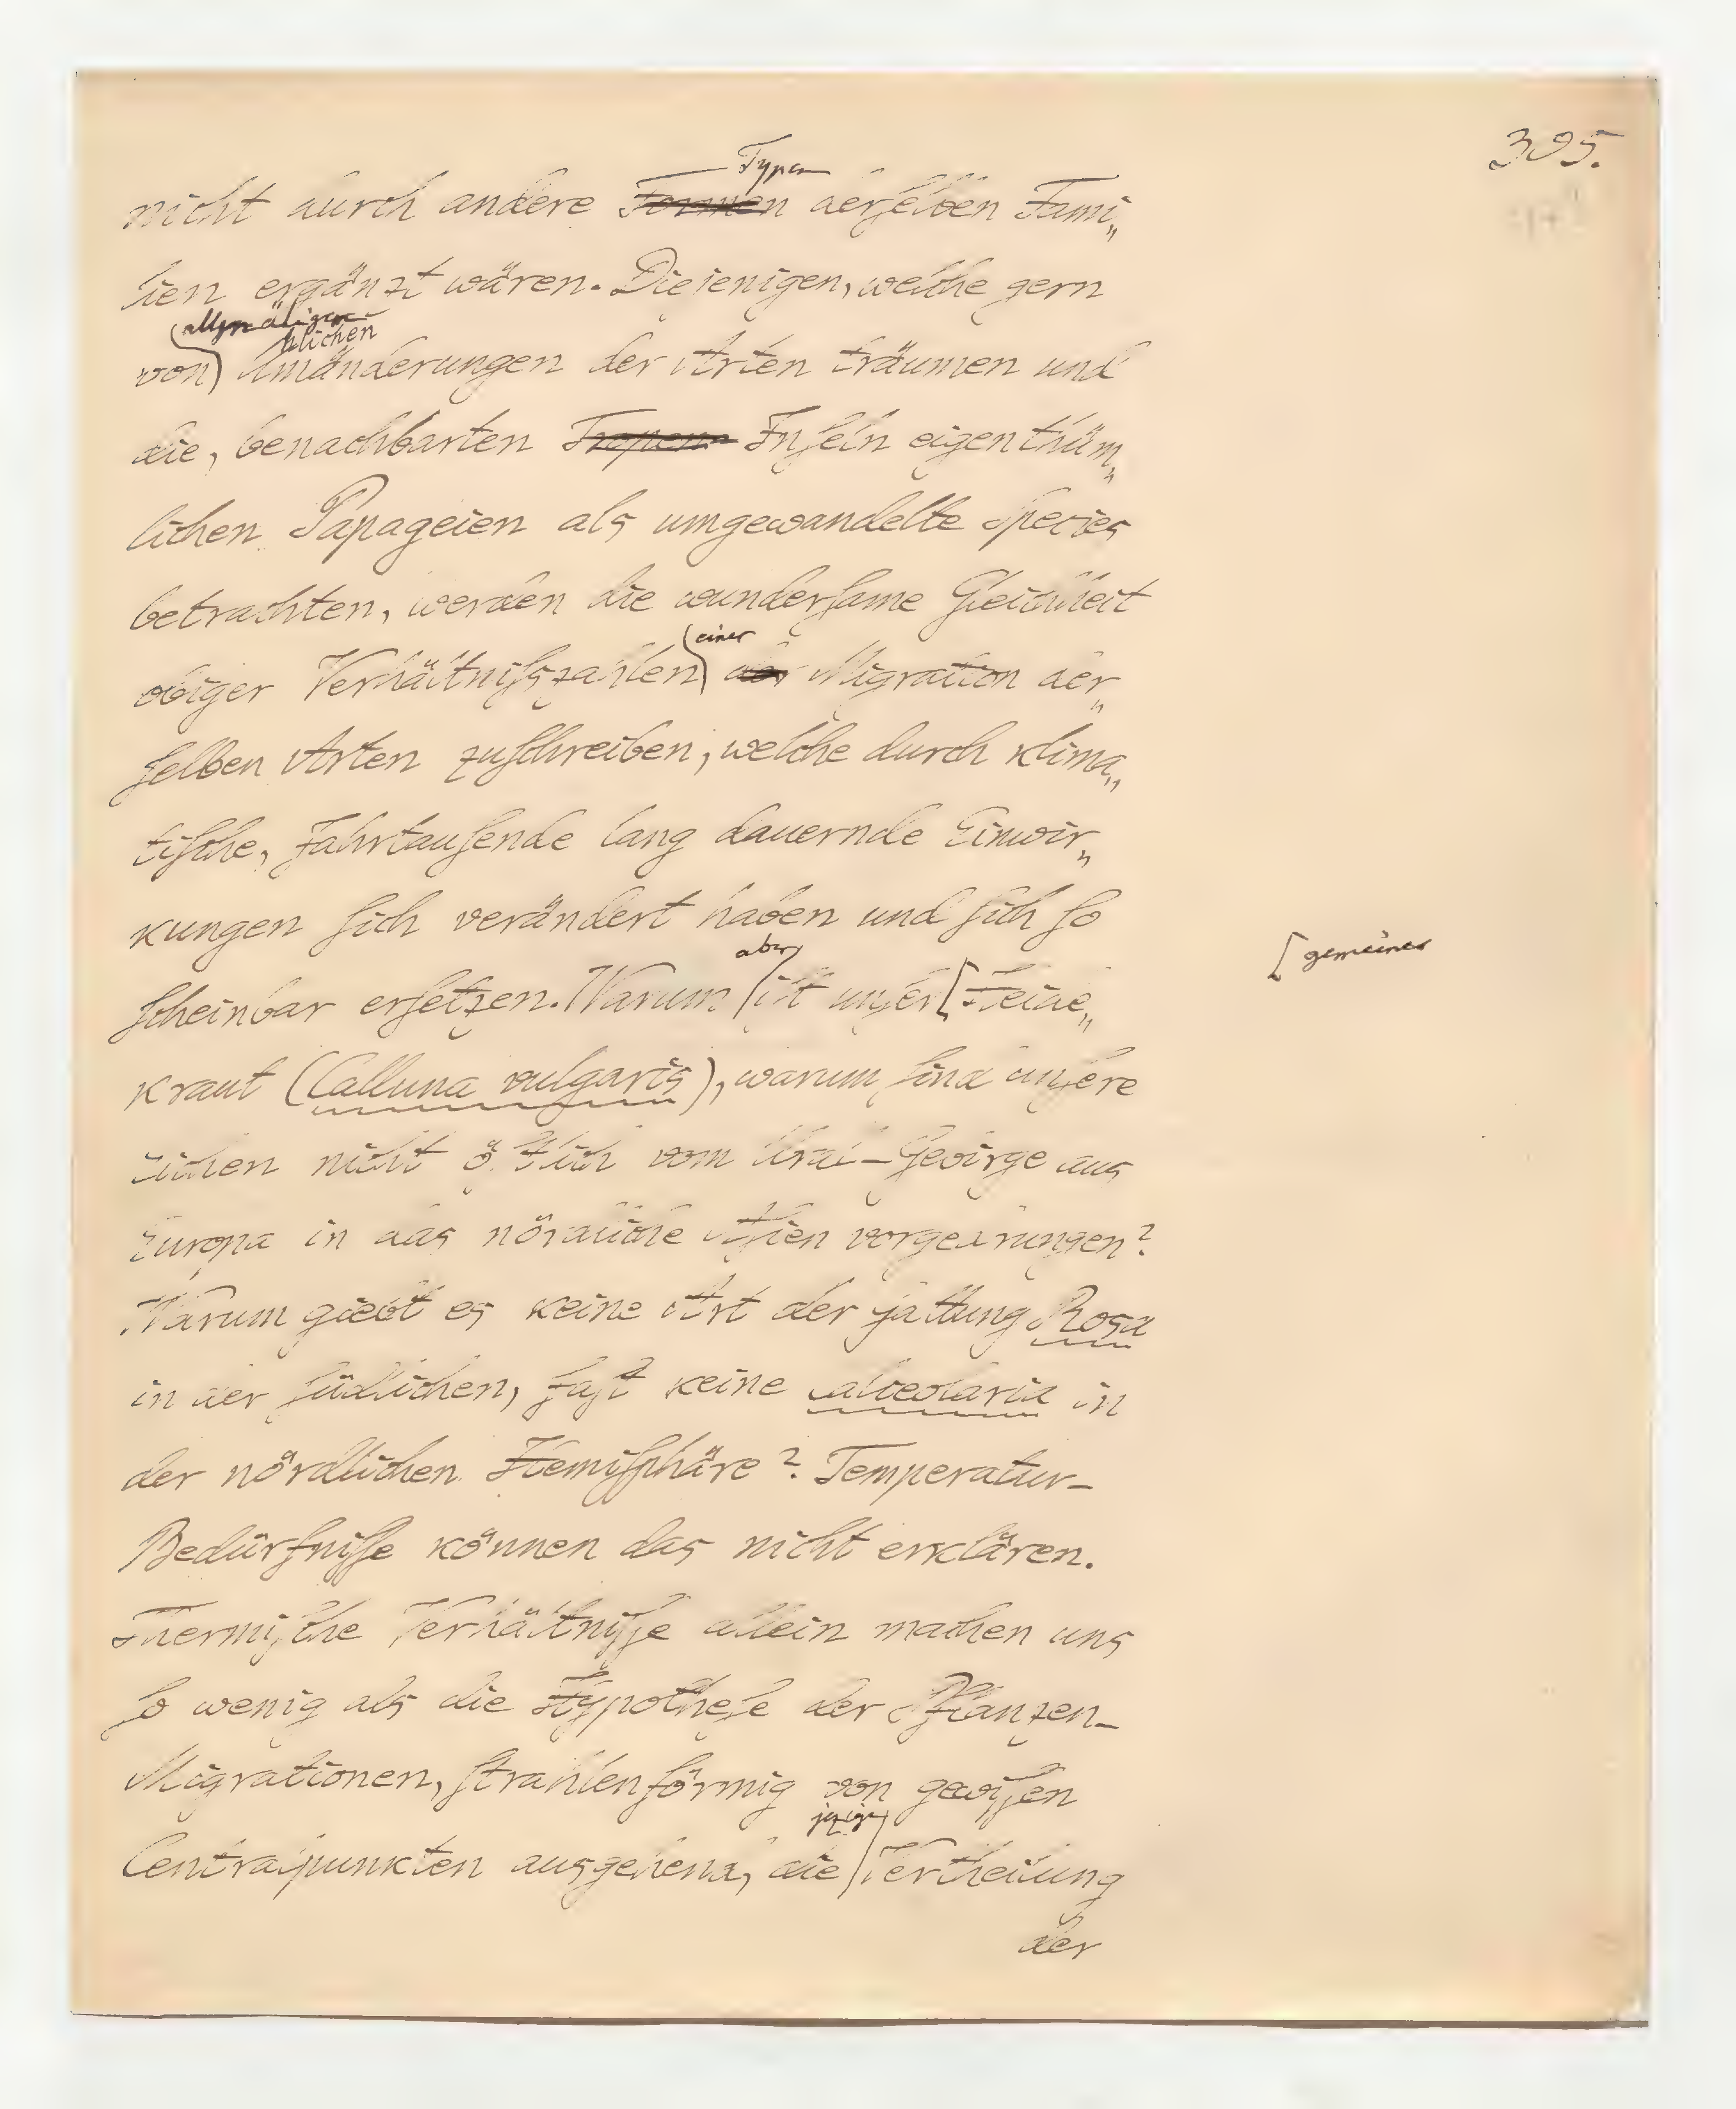 395.
Typen
nicht durch andere Formen derselben Fami„
lien ergänzt wären. Diejenigen, welche gern
allmäligen
hlichen
von Umänderungen der Arten träumen und
die, benachbarten Tropen Inseln eigenthüm„
lichen Papageien als umgewandelte Species
betrachten, werden die wundersame Gleichheit
einer
obiger Verhältnißzahlen der Migration der„
selben Arten zuschreiben, welche durch klima„
tische, Jahrtausende lang dauernde Einwir„
kungen sich verändert haben und sich so
aber
scheinbar ersetzen. Warum ist unser Heide„
[gemeines
kraut (Calluna vulgaris), warum sind unsere
Eichen nicht östlich vom Ural-Gebirge aus
Europa in das nördliche Asien vorgedrungen?
Warum giebt es keine Art der Gattung Rosa
in der südlichen, fast keine Calceolaria in
der nördlichen Hemisphäre? Temperatur-
Bedürfnisse können das nicht erklären.
Thermische Verhältnisse allein machen uns
so wenig als die Hypothese der Pflanzen-
Migrationen, strahlenförmig von gewissen
jezige
Centralpunkten ausgehend, die Vertheilung
der